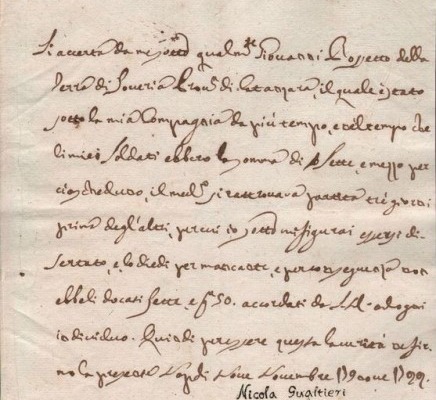 Si accerta da me sotto qualm.te Giovanni Rossetto della
Terra di Soveria Prov.a di Catanzara, il quale è stato
sotto la mia Compagnia da più tempo, e nel tempo che
li miei Soldati ebbero la somma di sette, e mezzo per
ciascheduno, il med.o si ritrovava partita tre giorni
prima degl'altri, per cui io sotto mi figurai essersi di-
sertato, e lo diedi per mancante, e per conseguenza non
ebbe li docati sette, e g.na 50. accordati da ad ogni
individuo. Quindi per essere questa la verità ne fir-
mo la presente Nap.li Nove Novembre 1799.
Nicola Gualtieri